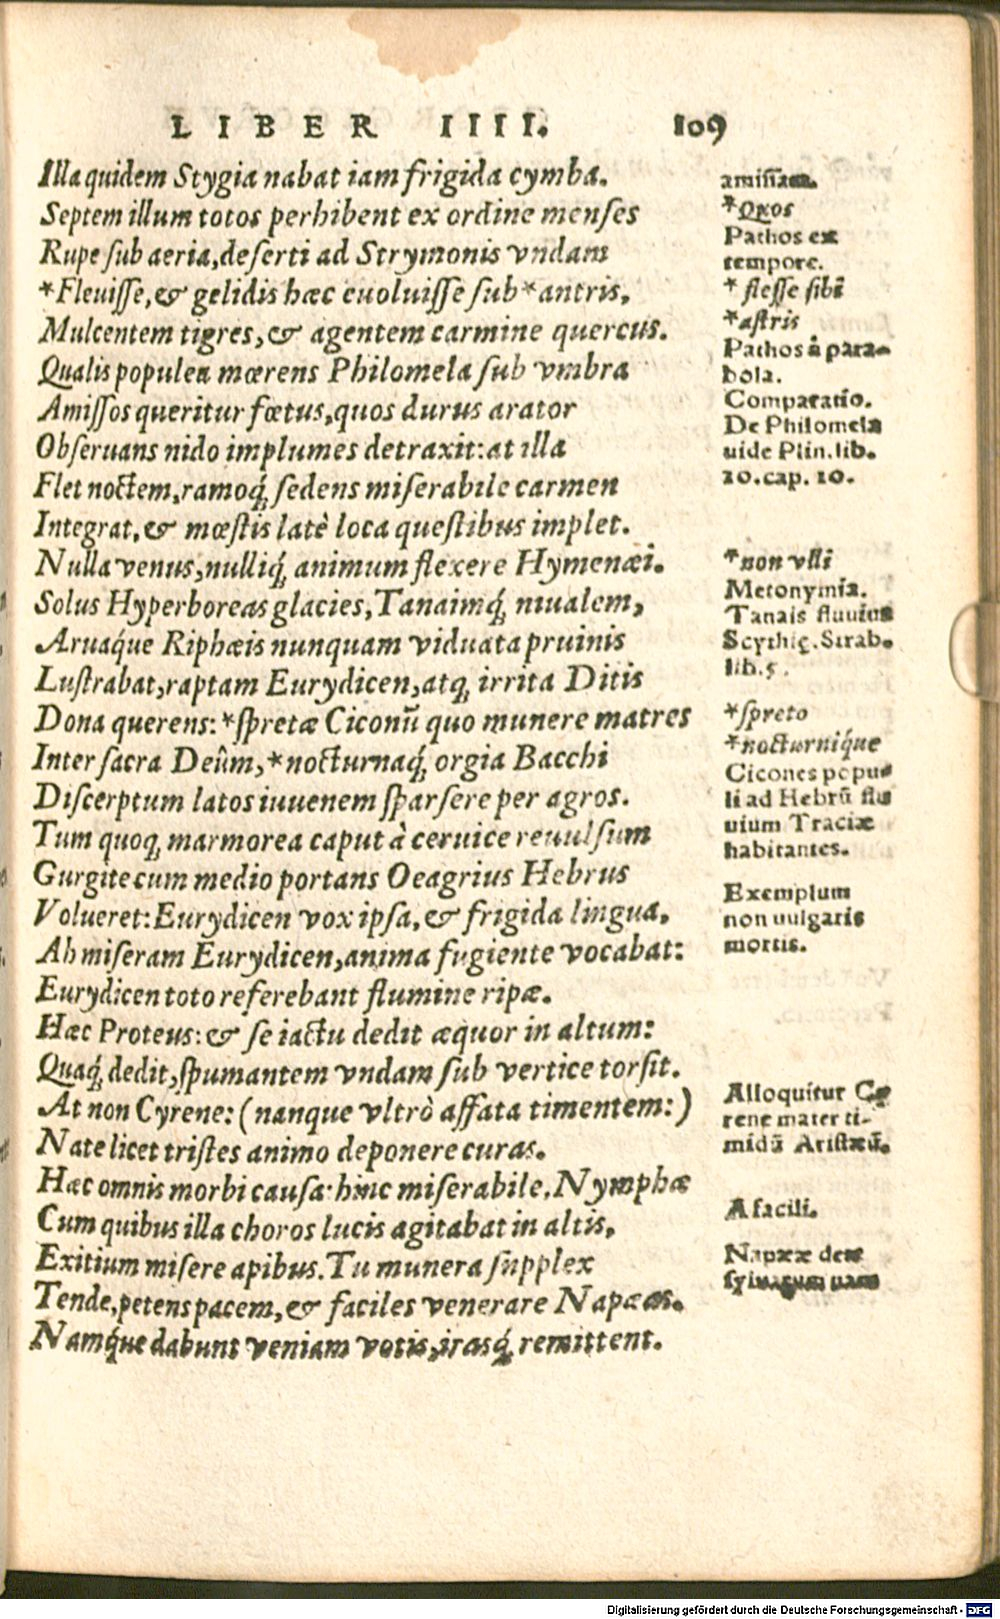 LIBER IIII. 109
Illa quidem Stygia nabat iam frigida cymba.
Septem illum totos perhibent ex ordine menses
Rupe sub aeria, deserti ad Strymonis vndam
*Fleuisse, & gelidis hæc euoluisse sub *antris,
Mulcentem tigres, & agentem carmine quercus.
Qualis populea mœrens Philomela sub vmbra
Amissos queritur fœtus, quos durus arator
Obseruans nido implumes detraxit: at illa
Flet noctem, ramoq́; sedens miserabile carmen
Integrat, & mœstis latè loca questibus implet.
Nulla venus, nulliq́; animum flexere Hymenæi.
Solus Hyperboreas glacies, Tanaimq́; niualem,
Aruaq́ue Riphæis nunquam viduata pruinis
Lustrabat, raptam Eurydicen, atq; irrita Ditis
Dona querens: *spretæ Ciconū quo munere matres
Inter sacra Deûm, *nocturnaq́; orgia Bacchi
Discerptum latos iuuenem sparsere per agros.
Tum quoq; marmorea caput à ceruice reuulsum
Gurgite cum medio portans Oeagrius Hebrus
Volueret: Eurydicen vox ipsa, & frigida lingua,
Ah miseram Eurydicen, anima fugiente vocabat:
Eurydicen toto referebant flumine ripæ.
Hæc Proteus: & se iactu dedit æquor in altum:
Quaq́; dedit, spumantem vndam sub vertice torsit.
At non Cyrene: (nanque vltrò affata timentem:)
Nate licet tristes animo deponere curas.
Hæc omnis morbi causa: hinc miserabile, Nymphæ
Cum quibus illa choros lucis agitabat in altis,
Exitium misere apibus. Tu munera supplex
Tende, petens pacem, & faciles venerare Napæas.
Namq́ue dabunt veniam votis, irasq́; remittent.
amissam.
Pathos ex
tempore.
* flesse sibi
*astris
Pathos à para-
bola.
Comparatio.
De Philomela
uide Plin. lib.
10. cap. 10.
*non vlli
Metonymia.
Tanais fluuius
Scythię. Strab.
lib. 5.
*spreto
*nocturniq́ue
Cicones popu-
li ad Hebrū flu
uium Traciæ
habitantes.
Exemplum
non uulgaris
mortis.
Alloquitur Cy
rene mater ti-
midū Aristæū.
A facili.
Napææ deæ
Digitalisierung gefördert durch die Deutsche Forschungsgemeinschaft - DFG